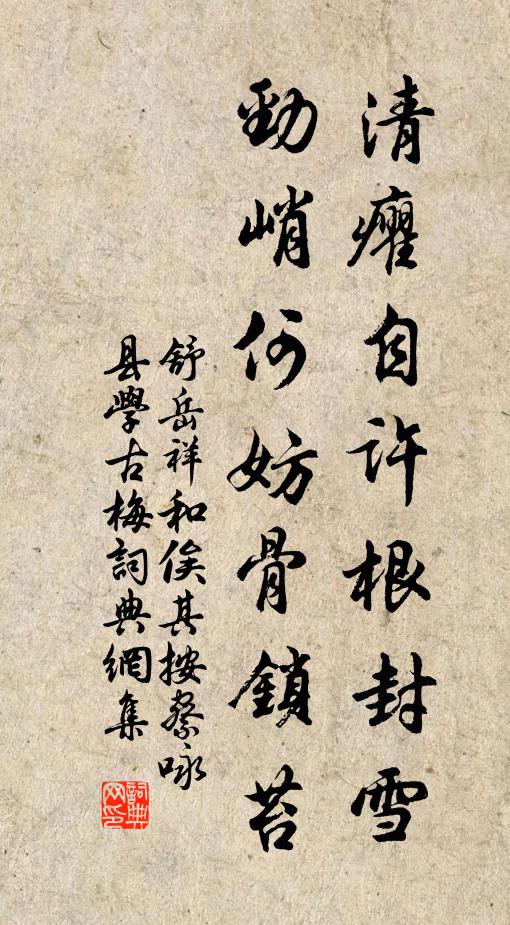 清癯自許根封雪
勁峭何妨骨鎖苔
舒岳祥和侯其按察咏
县學古梅詞典網集
詞典网印